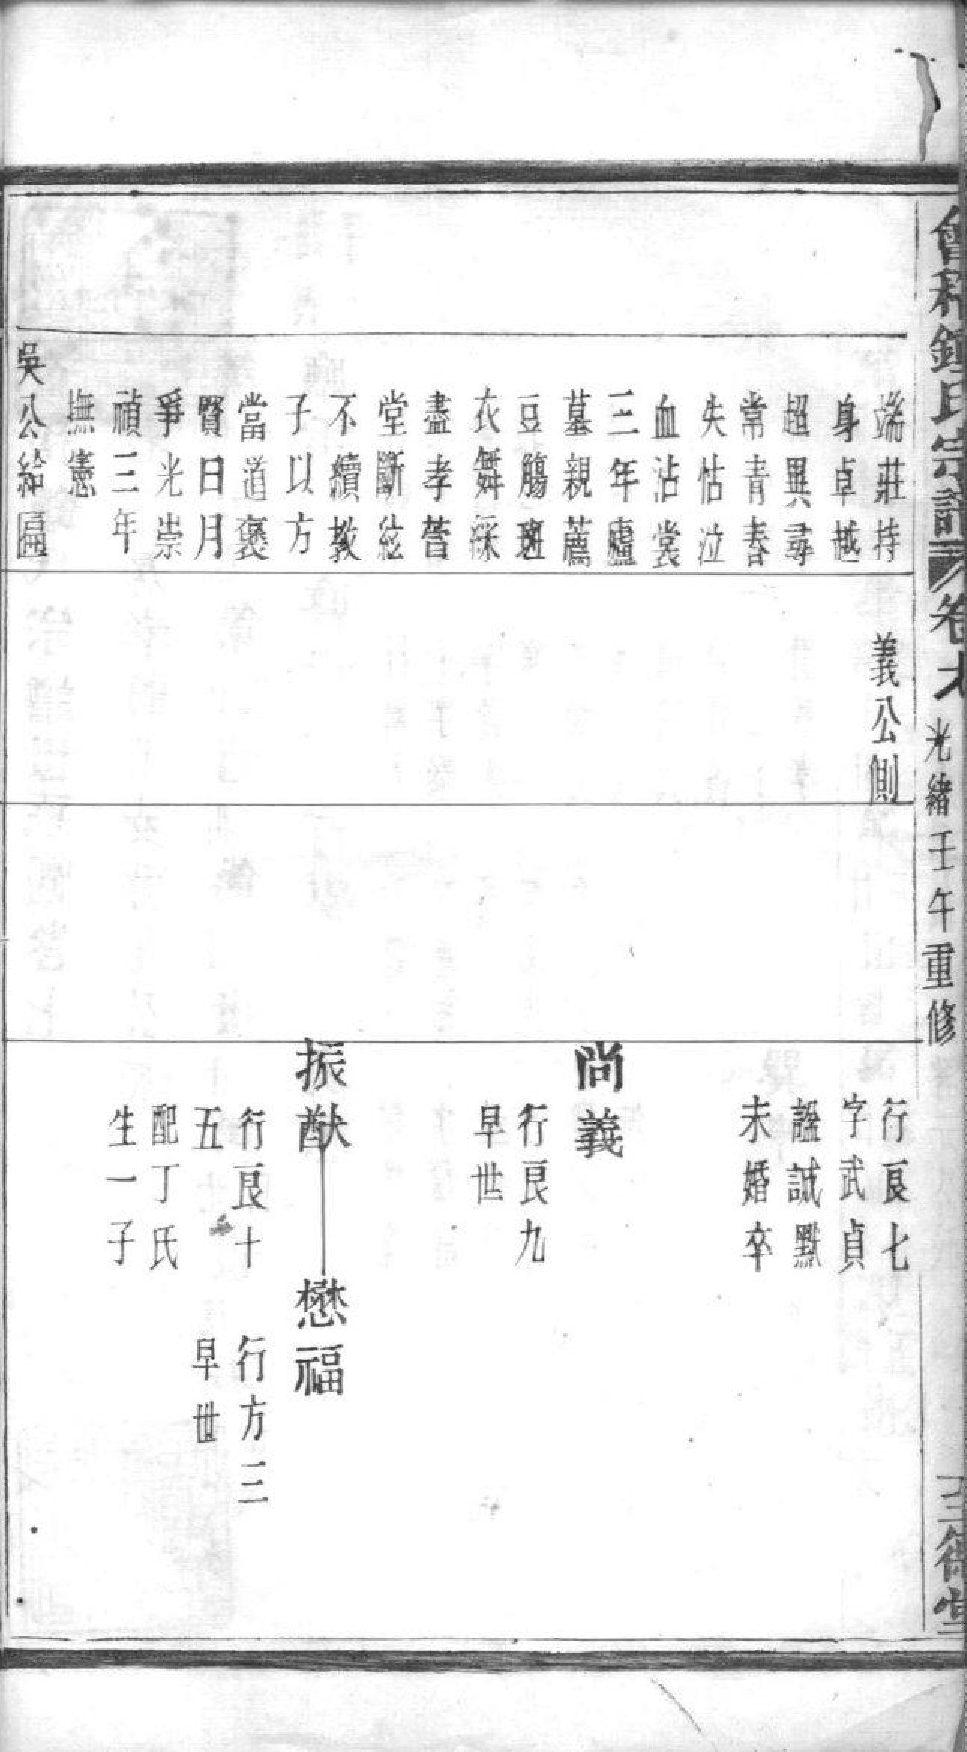 會稽鍾氏宗譜 卷九 光緒壬午重修
端莊持
身卓越
超異尋
常青春
失怙泣
血沾裳
三年廬
墓親薦
豆觴斑
衣舞綵
盡孝萱
堂斷絃
不續教
子以方
當道褒
賢日月
爭光崇
禎三年
撫憲
吳公給匾
義公側
行良七
字武貞
諡誠默
未婚卒
尚義
行良九
早世
振猷
行良十
五
配丁氏
生一子
懋福
行方三
早世